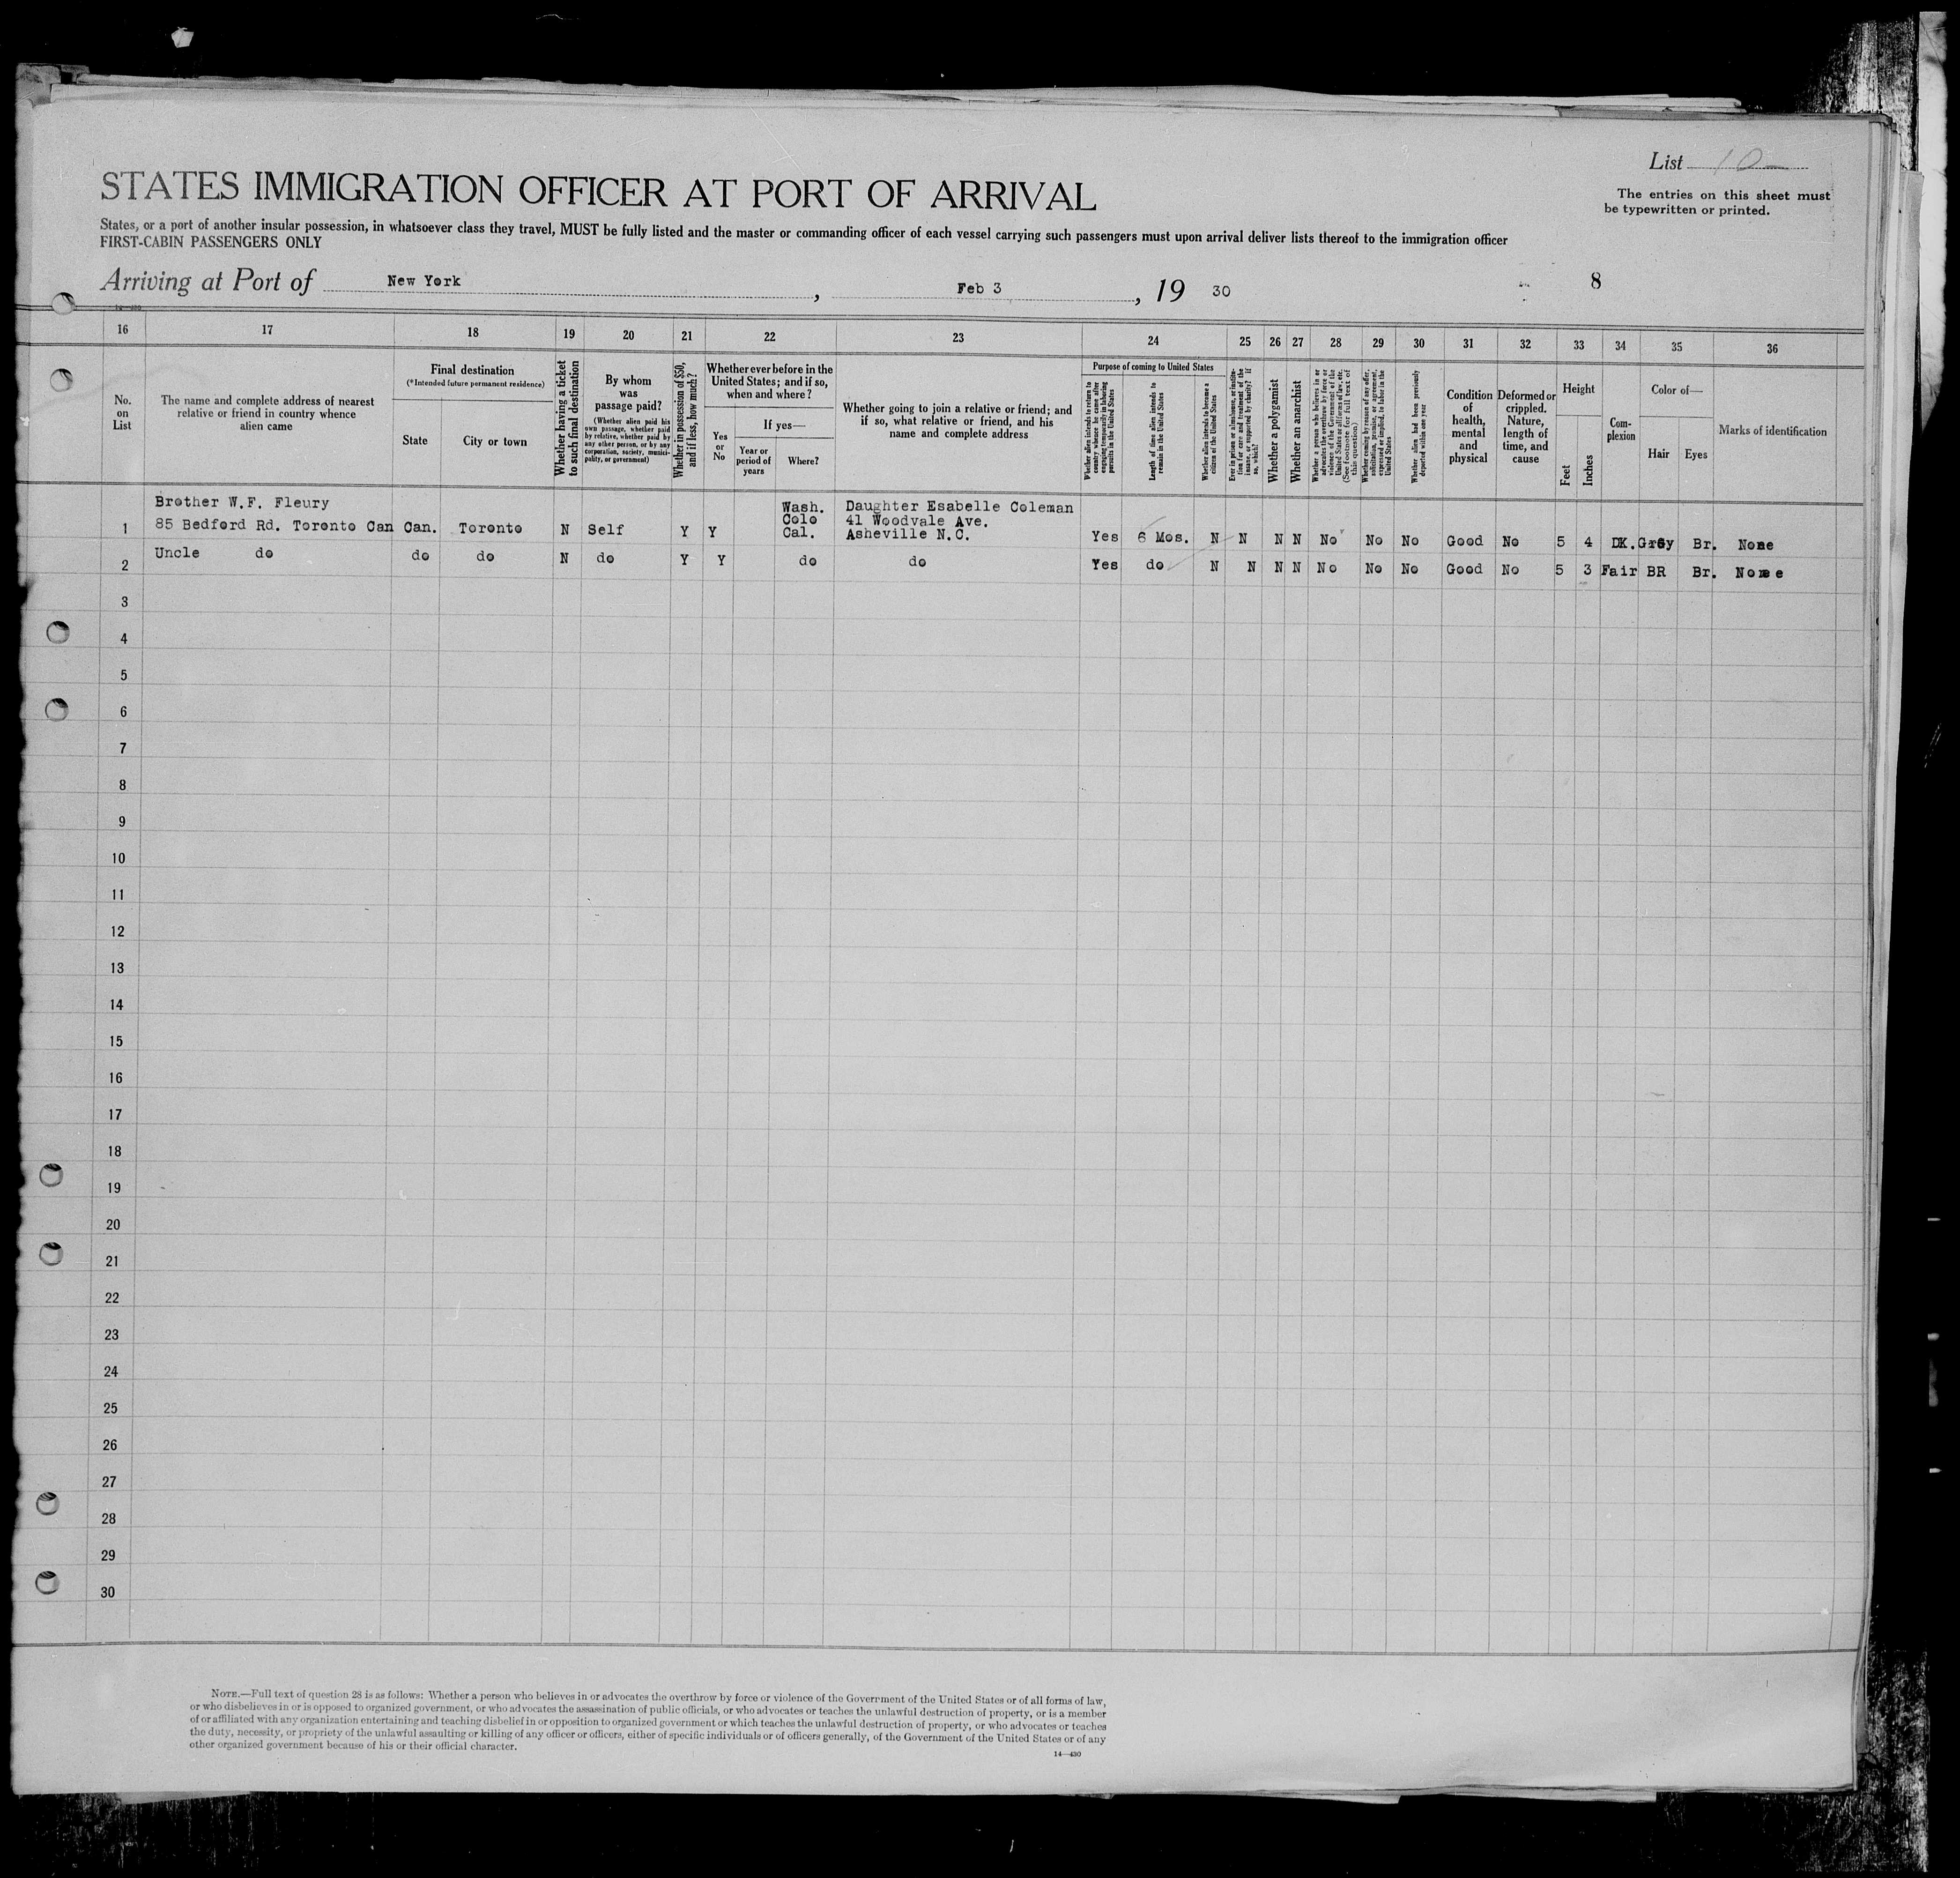 List 10
STATES IMMIGRATION OFFICER AT PORT OF ARRIVAL
The entries on this sheet must
be typewritten or printed.
States, or a port of another insular possession, in whatsoever class they travel, MUST be fully listed and the master or commanding officer of each vessel carrying such passengers must upon arrival deliver lists thereof to the immigration officer
FIRST-CABIN PASSENGERS ONLY
Arriving at Port of New York, Feb 3, 19 30
8
16 17 18 19 20 21 22 23 24 25 26 27 28 29 30 31 32 33 34 35 36
No.
on
List
The name and complete address of nearest
relative or friend in country whence
alien came
Final destination
(*Intended future permanent residence)
State
City or town
Whether having a ticket
to such final destination
By whom
was
passage paid?
(Whether alien paid his
own passage, whether paid
by relative, whether paid by
any other person, or by any
corporation, society, munici-
pality, or government)
Whether in possession of $50,
and if less, how much?
Whether ever before in the
United States; and if so,
when and where?
Yes
or
No
If yes—
Year or
period of
years
Where?
Whether going to join a relative or friend; and
if so, what relative or friend, and his
name and complete address
Purpose of coming to United States
Whether alien intends to return to
country whence he came after
engaging temporarily in laboring
pursuits in the United States
Length of time alien intends to
remain in the United States
Whether alien intends to become a
citizen of the United States
Ever in prison or almshouse, or institu-
tion for care and treatment of the
insane, or supported by charity? If
so, which?
Whether a polygamist
Whether an anarchist
Whether a person who believes in or
advocates the overthrow by force or
violence of the Government of the
United States or all forms of law, etc.
(See footnote for full text of
this question)
Whether coming by reason of any offer,
solicitation, promise, or agreement,
expressed or implied, to labor in the
United States
Whether alien had been previously
deported within one year
Condition
of
health,
mental
and
physical
Deformed or
crippled.
Nature,
length of
time, and
cause
Height
Feet
Inches
Com-
plexion
Color of—
Hair
Eyes
Marks of identification
Brother W.F. Fleury Wash. Daughter Esabelle Coleman
1 85 Bedford Rd. Toronto Can Can. Toronto N Self Y Y Colo 41 Woodvale Ave.
Cal. Asheville N.C. Yes 6 Mos. N N N N No No No Good No 5 4 DK. Grey Br. None
2 Uncle do do do N do Y Y do do Yes do N N N N No No No Good No 5 3 Fair BR Br. None
3
4
5
6
7
8
9
10
11
12
13
14
15
16
17
18
19
20
21
22
23
24
25
26
27
28
29
30
NOTE.—Full text of question 28 is as follows: Whether a person who believes in or advocates the overthrow by force or violence of the Government of the United States or of all forms of law,
or who disbelieves in or is opposed to organized government, or who advocates the assassination of public officials, or who advocates or teaches the unlawful destruction of property, or is a member
of or affiliated with any organization entertaining and teaching disbelief in or opposition to organized government or which teaches the unlawful destruction of property, or who advocates or teaches
the duty, necessity, or propriety of the unlawful assaulting or killing of any officer or officers, either of specific individuals or of officers generally, of the Government of the United States or of any
other organized government because of his or their official character.
14—430